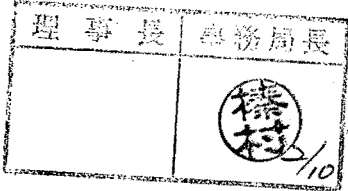 理事長 事務局長
榛村
2/10